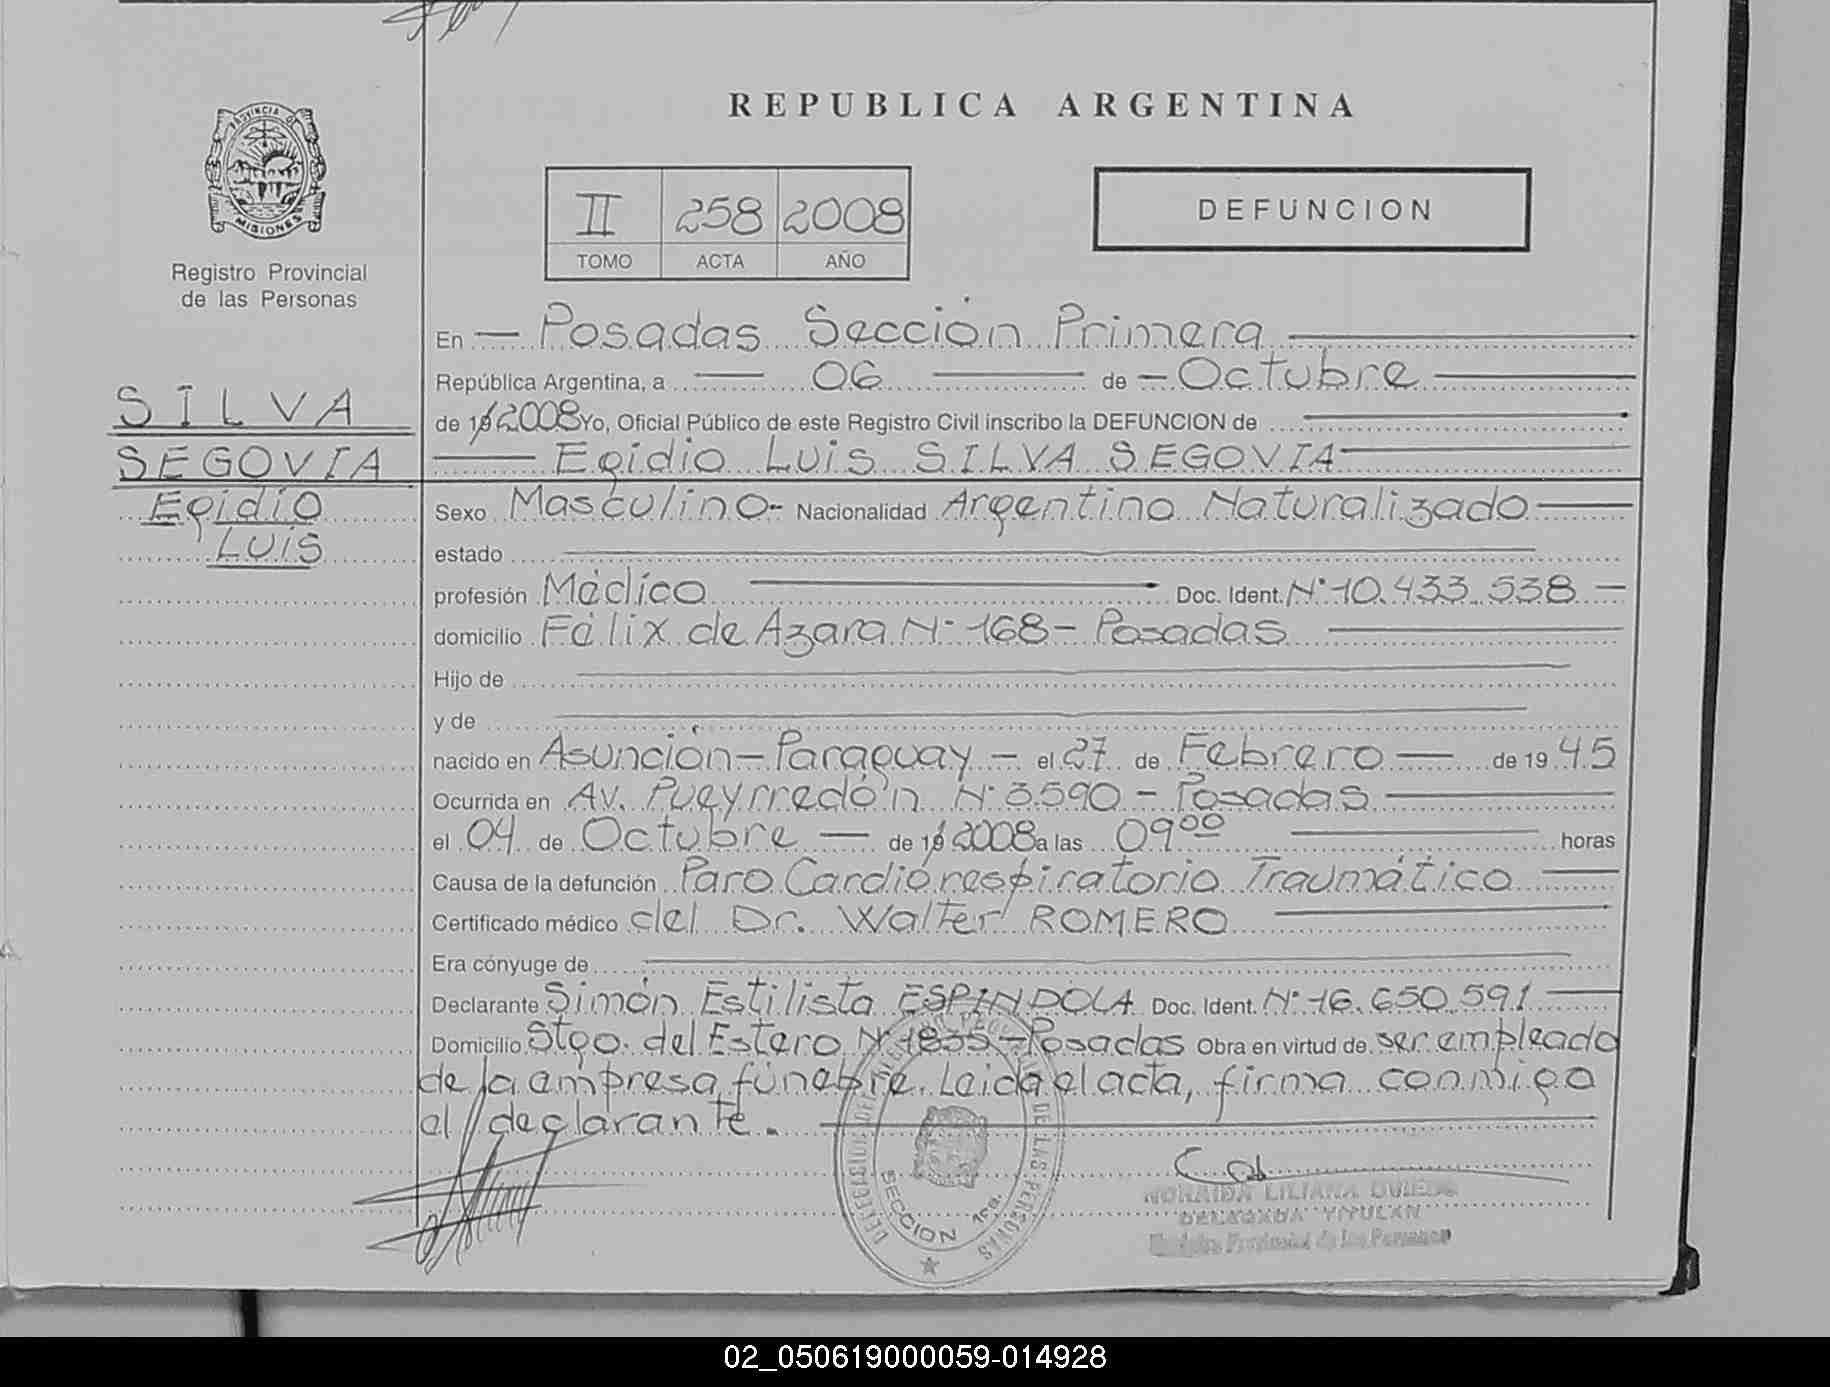 REPUBLICA ARGENTINA
PROVINCIA DE
MISIONES
Registro Provincial
de las Personas
II 258 2008
TOMO ACTA AÑO
DEFUNCION
SILVA
SEGOVIA
Egidio
Luis
En Posadas Sección Primera
República Argentina, a 06 de Octubre
de 19 2008 Yo, Oficial Público de este Registro Civil inscribo la DEFUNCION de
Egidio Luis SILVA SEGOVIA
Sexo Masculino- Nacionalidad Argentino Naturalizado
estado
profesión Médico Doc. Ident. Nº 10.433.538
domicilio Félix de Azara Nº 168 - Posadas
Hijo de
y de
nacido en Asunción - Paraguay - el 27 de Febrero de 19 45
Ocurrida en Av. Pueyrredón Nº 3590 - Posadas
el 04 de Octubre de 19 2008 a las 09⁰⁰ horas
Causa de la defunción Paro Cardiorespiratorio Traumático
Certificado médico del Dr. Walter ROMERO
Era cónyuge de
Declarante Simón Estilista ESPINDOLA Doc. Ident. Nº 16.650.591
Domicilio Stgo. del Estero Nº 1835 - Posadas Obra en virtud de ser empleado
de la empresa fúnebre. Leida el acta, firma conmigo
el declarante.
DE LAS PERSONAS
SECCION 1ra.
NORAIDA LILIANA OVIEDO
DELEGADA TITULAR
Registro Provincial de las Personas
02_050619000059-014928